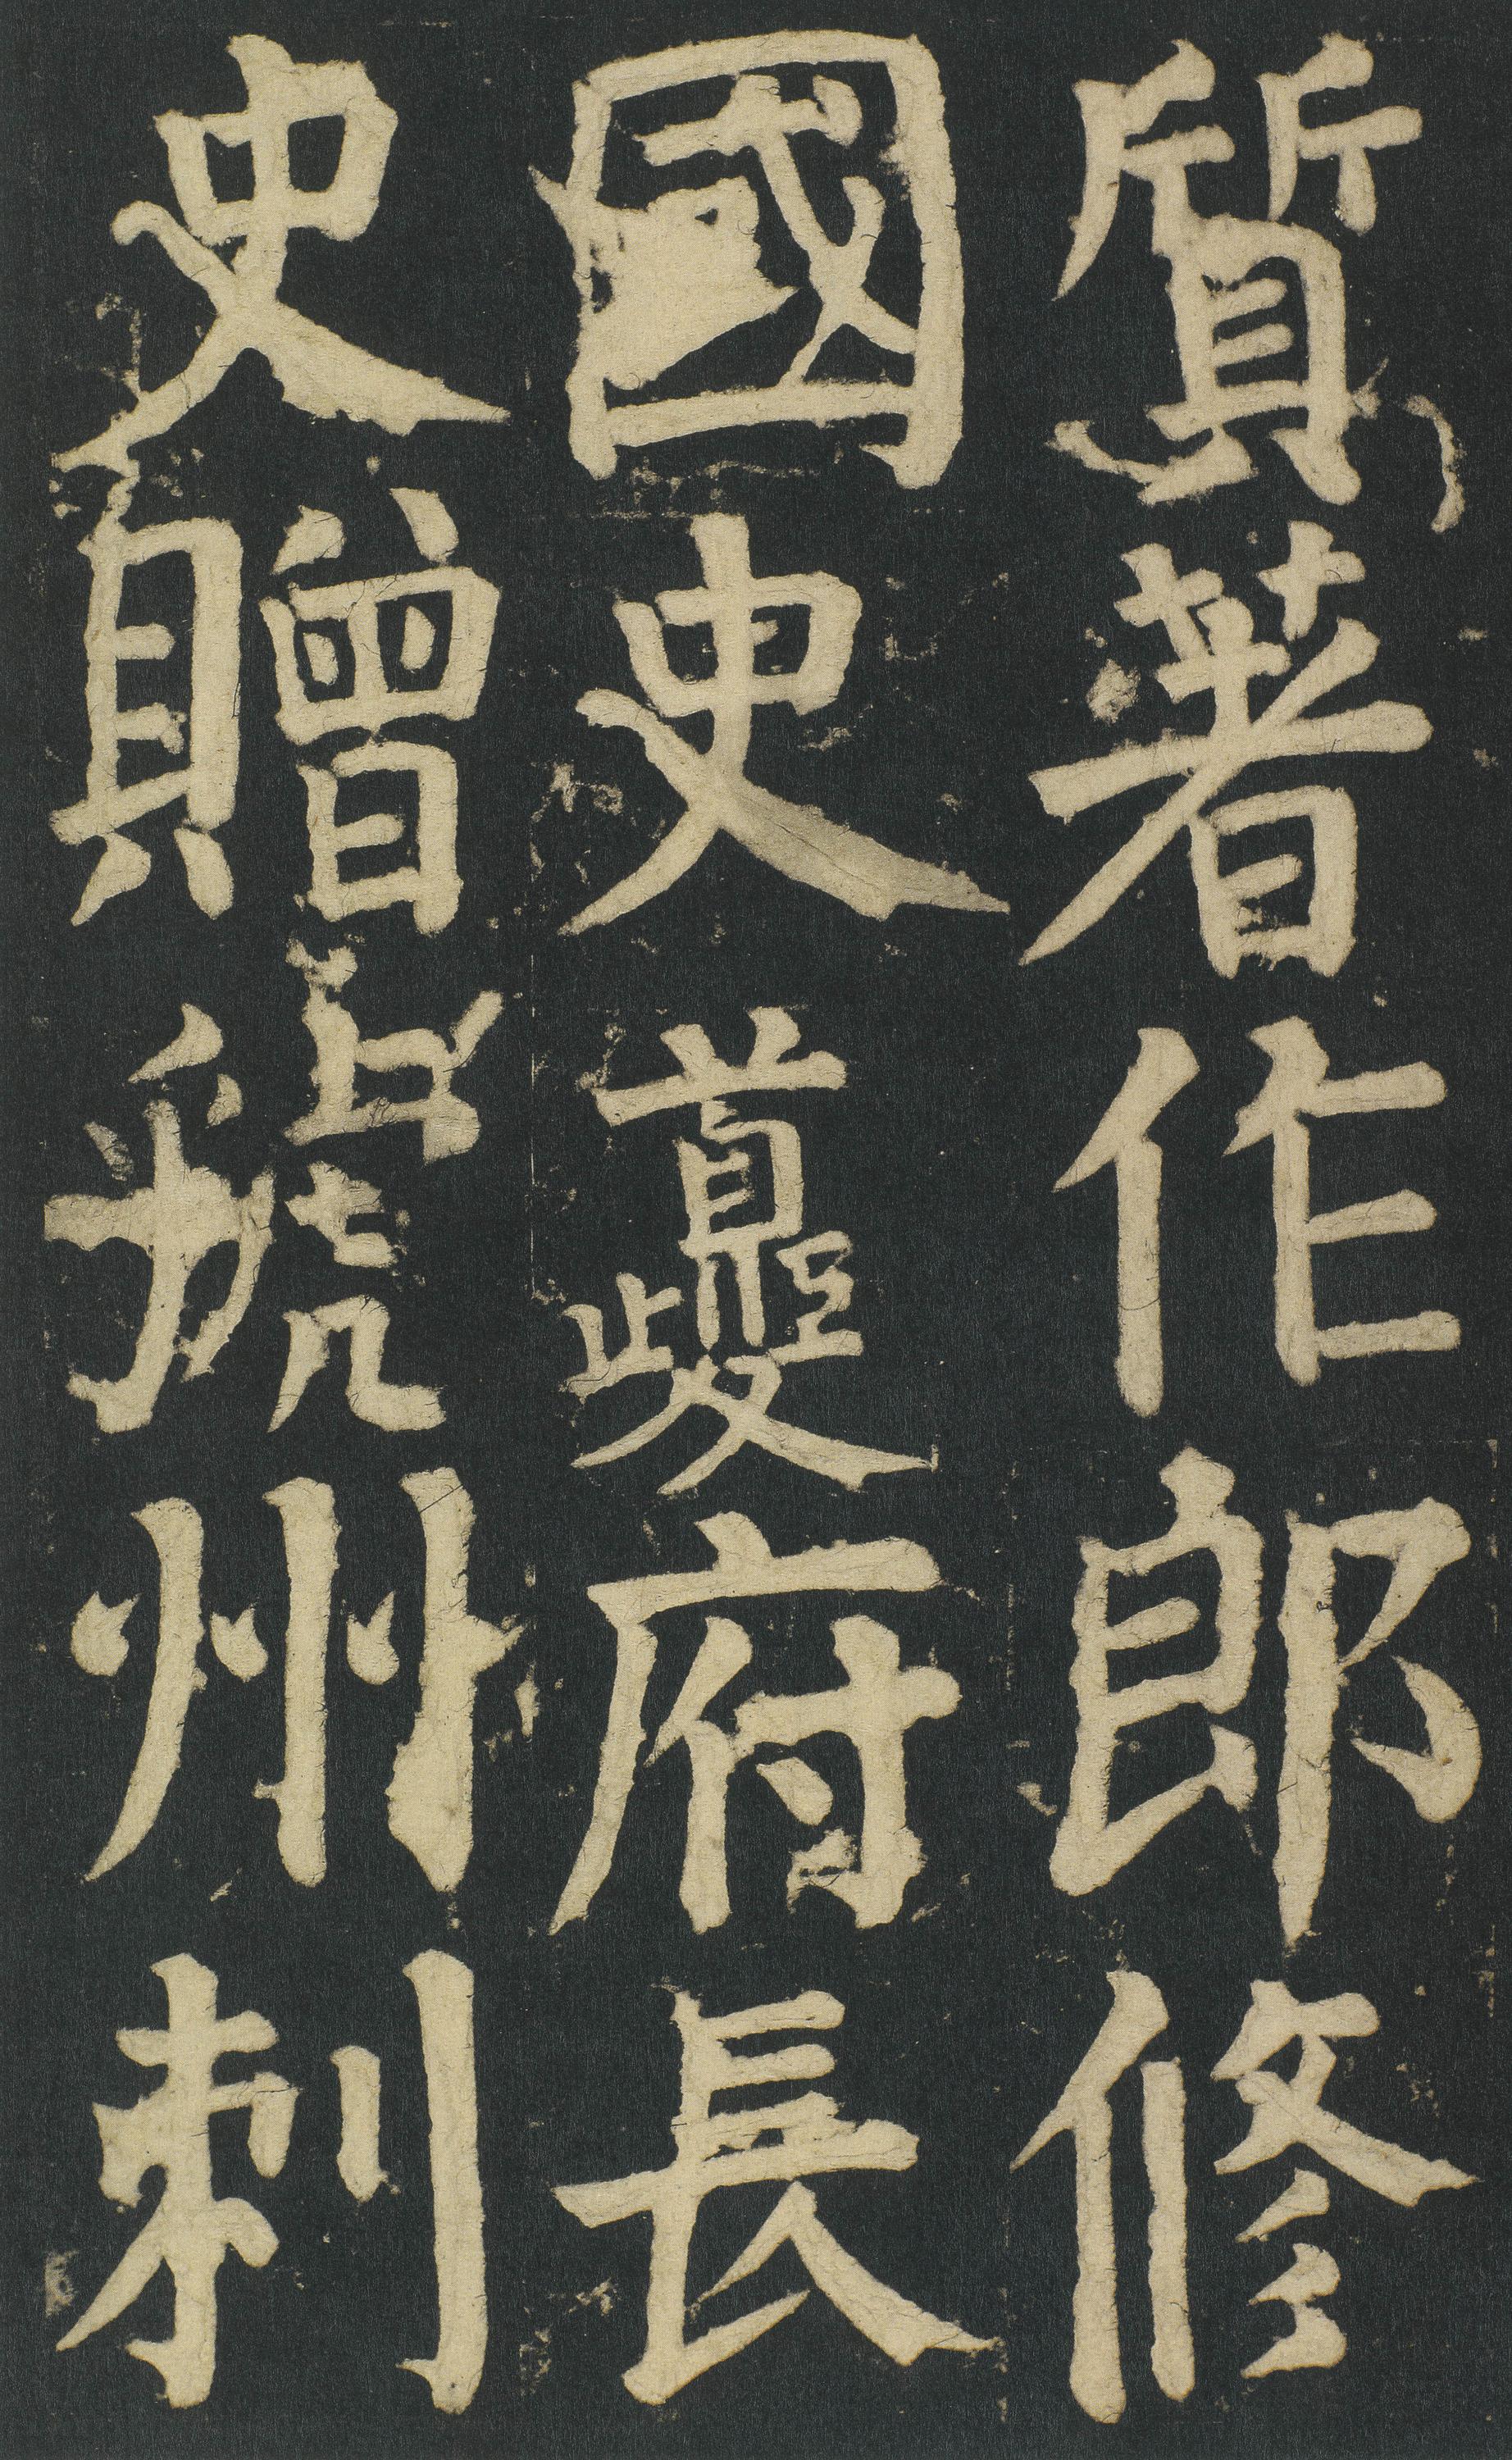 質著作郎修
國史夔府長
史贈虢州刺